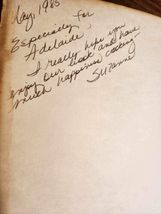 May, 1985
Especially for
Adelaide,
I really hope you
enjoy our book and have
much happiness cooking.
Suzanne